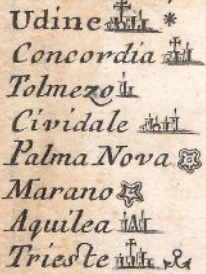 Udine
Concordia
Tolmezo
Cividale
Palma Nova
Marano
Aquilea
Trieſte